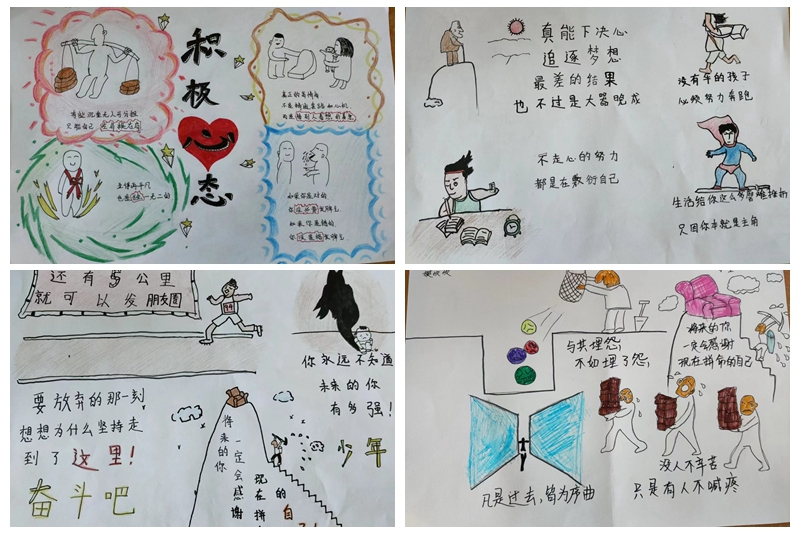 积极心态
有些沉重无人可分担
只能自己
主体再平凡
也是 一无二的
如果你是对的
你没必要发脾气
如果你是错的
你没资格发脾气
真能下决心
追逐梦想
最差的结果
也不过是大器晚成
没有伞的孩子
必须努力奔跑
不走心的努力
都是在敷衍自己
生活给你这么多磨难挫折
只因你本就是主角
还有5公里
就可以发朋友圈
你永远不知道
未来的你
有多强!
要放弃的那一刻
想想为什么坚持走
到了这里!
奋斗吧
少年
将来的你
一定会感谢
现在拼
的
自己
与其埋怨,
不如埋了怨,
将来的你
一定会感谢
现在拼命的自己
凡是过去,皆为序曲
没人不辛苦
只是有人不喊疼